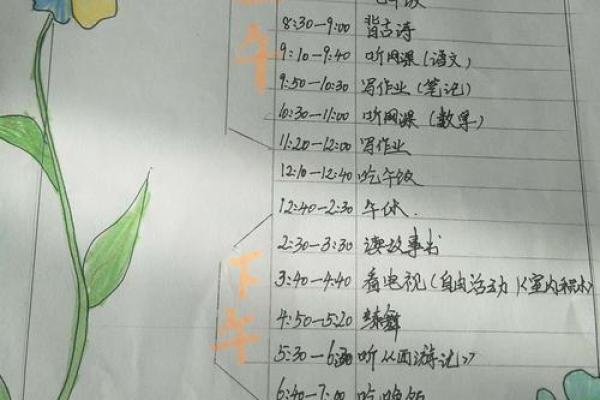 吃午饭
上午
8:30—9:00 背古诗
9:10—9:40 听网课(语文)
9:50—10:30 写作业(笔记)
10:30—11:00 听网课(数学)
11:20—12:00 写作业
12:10—12:40 吃午饭
12:40—2:30 午休.
下午
2:30—3:30 读故事书
3:40—4:40 看电视(自由活动)(室内积木)
4:50—5:20 练舞
5:30—6:30 听《西游记》
6:40—7:00 吃晚饭